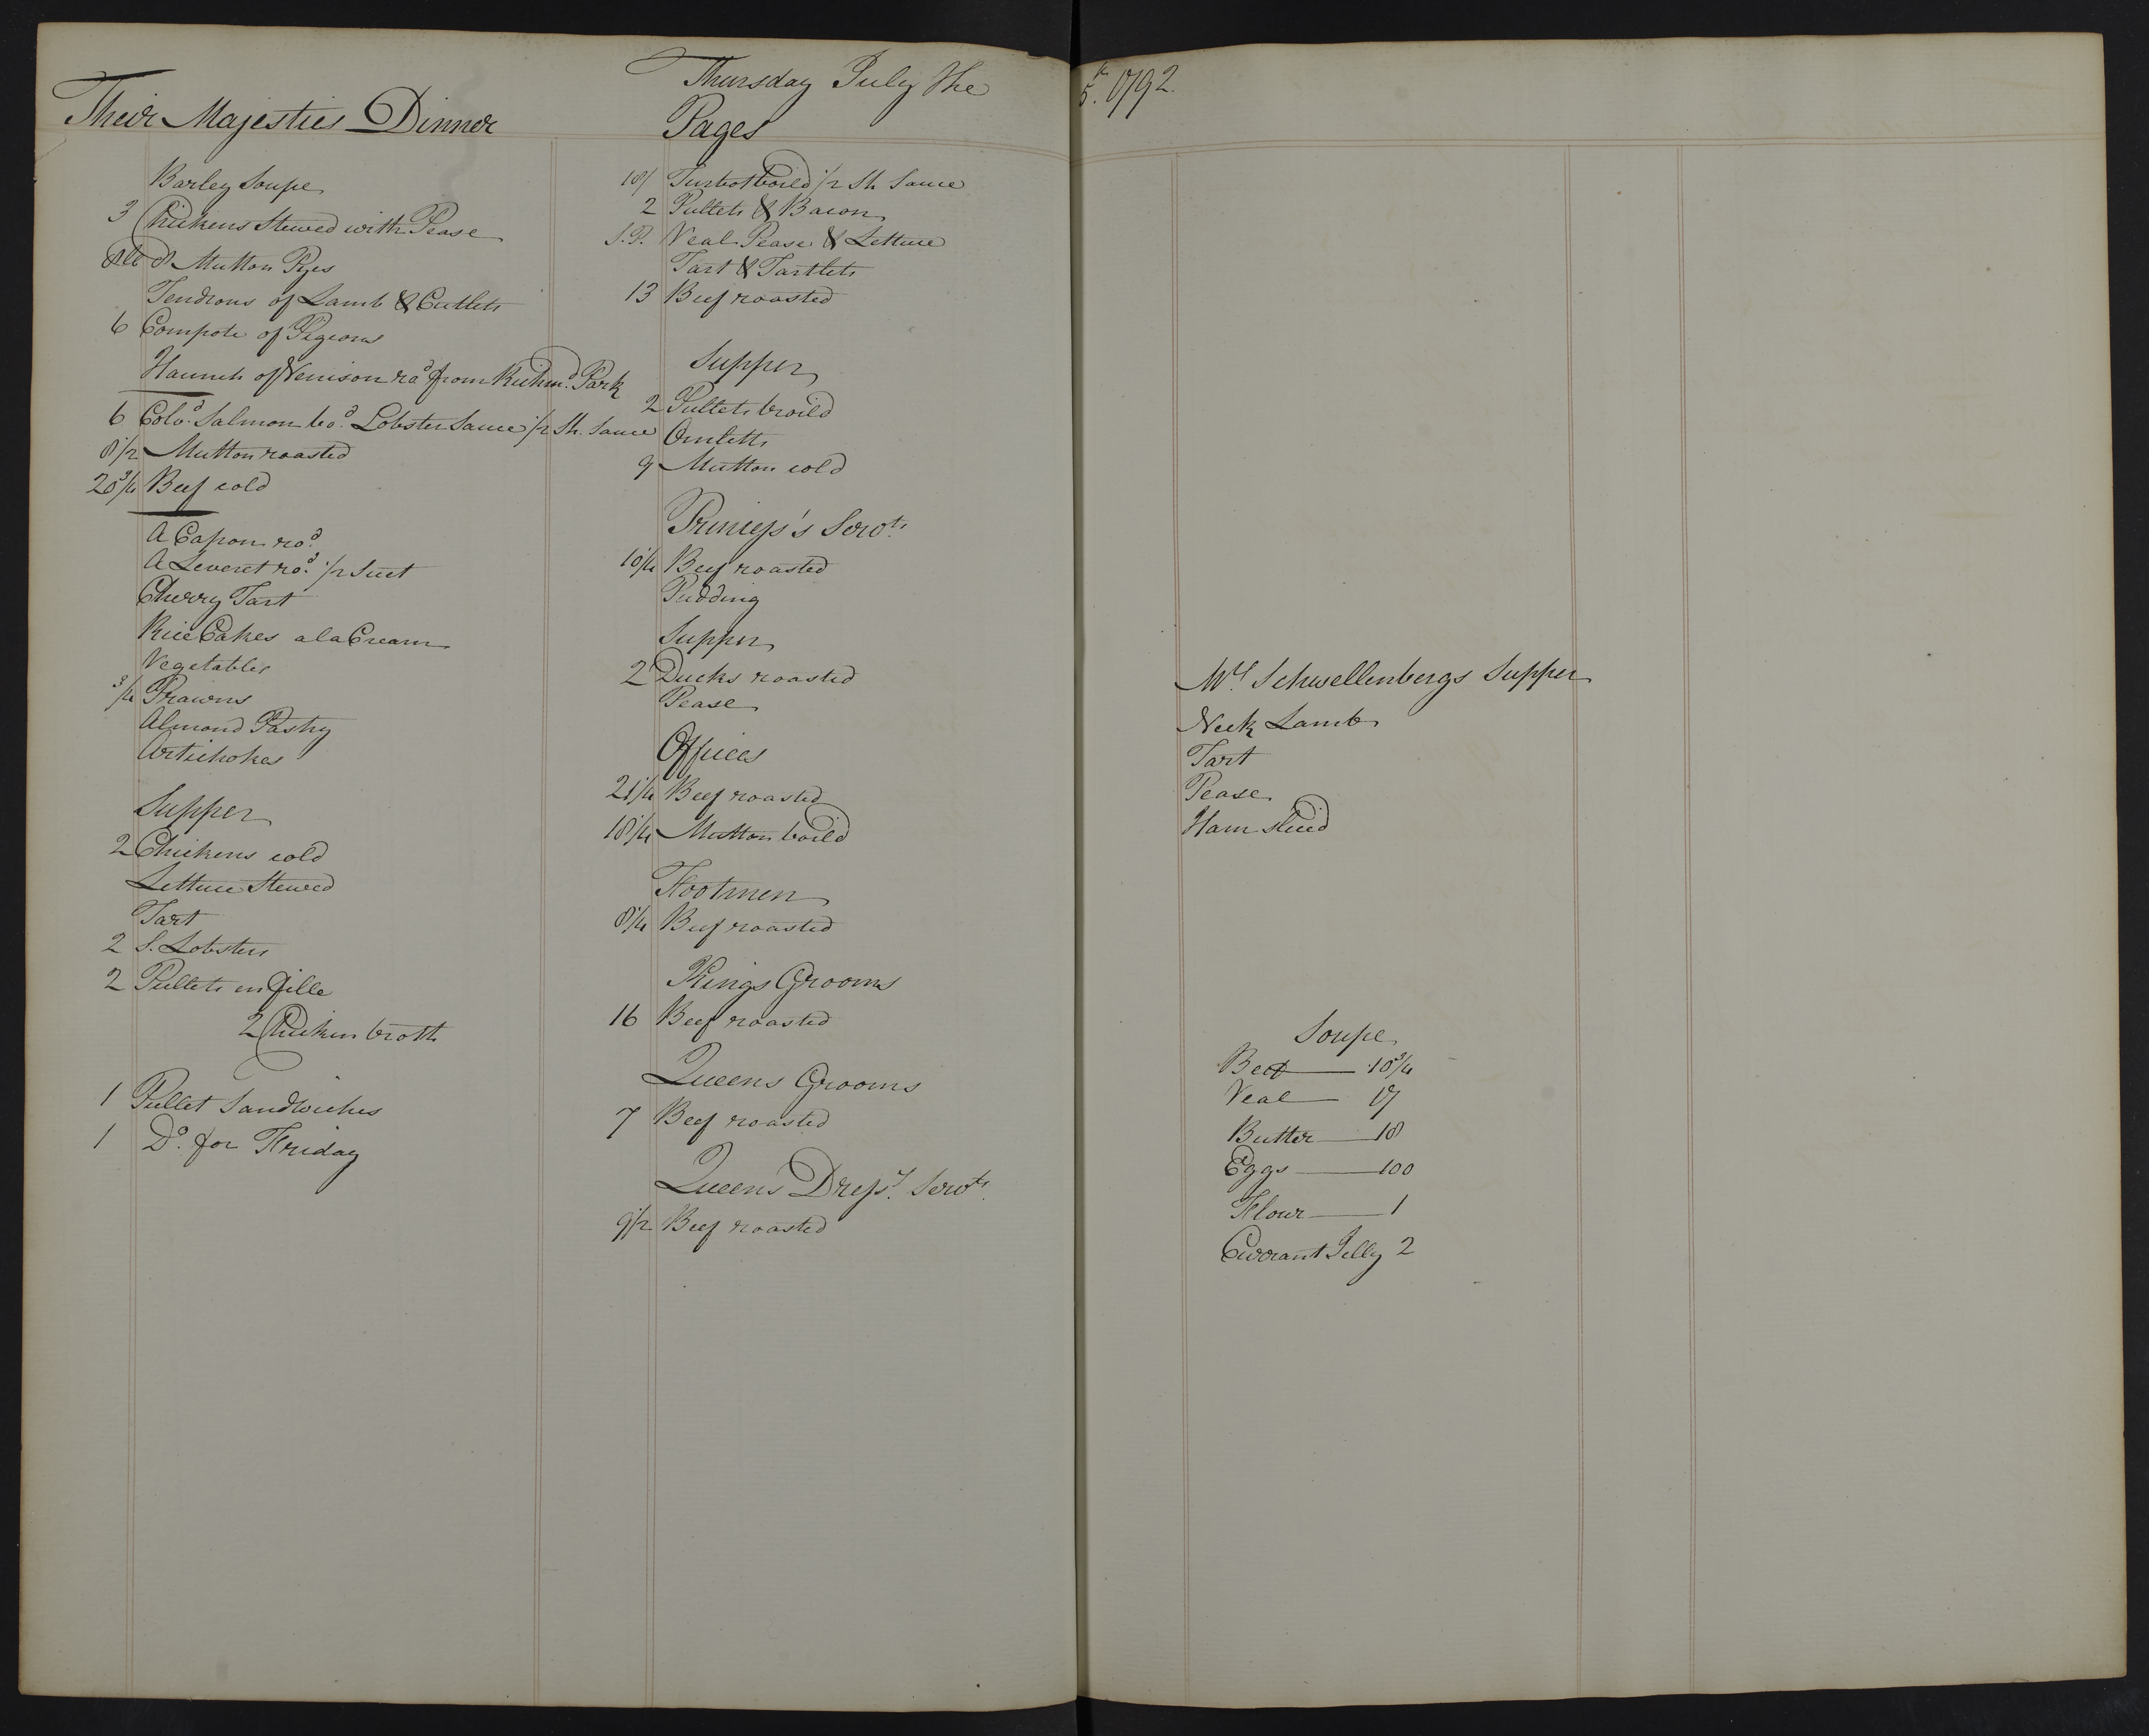 Thursday July the 5th. 1792.
Their Majesties Dinner
Barley Soupe
3 Chickens Stewed with Pease
Mutton Pyes
Tendrons of Lamb & Cutlets
6 Compote of Pigeons
Haunch of Venison ro.d from Richm.d Park
6 Colo.d Salmon bo.d Lobster Sauce 1/2 Sh. Sauce
8 1/2 Mutton roasted
20 3/4 Beef cold
A Capon ro.d
A Leveret ro.d 1/2 Suet
Cherry Tart
Rice Cakes a la Cream
Vegetables
3/4 Prawns
Almond Pastry
Artichokes
Supper
2 Chickens cold
Lettuce Stewed
Tart
2 S. Lobsters
2 Pullets en Gille
2 Chicken broth
1 Pullet Sandwiches
1 D.o for Friday
Pages
Turbot boild 1/2 Sh Sauce
2 Pullets & Bacon
S.P. Veal Pease & Lettuce
Tart & Tartlets
13 Beef roasted
Supper
2 Pullets broild
Omletts
9 Mutton cold
Princess's Servts.
10 1/4 Beef roasted
Pudding
Supper
2 Ducks roasted
Pease
Offices
21 1/4 Beef roasted
18 1/4 Mutton boild
Footmen
8 1/4 Beef roasted
Kings Grooms
16 Beef roasted
Queens Grooms
7 Beef roasted
Queens Dress.rs Servts.
9 1/2 Beef roasted
Mrs. Schwellenbergs Supper
Neck Lamb
Tart
Pease
Ham sliced
Soupe
Beef 10 3/4
Veal 17
Butter 18
Eggs 100
Flour 1
Currant Jelly 2